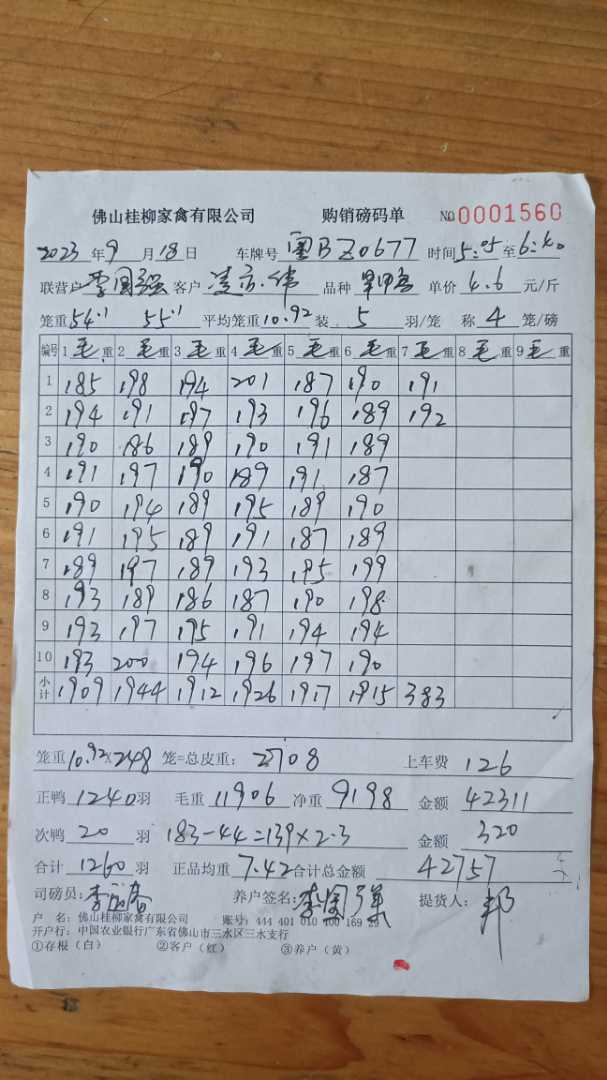 佛山桂柳家禽有限公司 购销磅码单 NO 0001560
2023 年 9 月 18 日 车牌号 粤BZ0677 时间 5:05 至 6:40
联营户 李国强 客户 凌 伟 品种 单价 4.6 元/斤
笼重 54.1 55.1 平均笼重 10.92 装 5 羽/笼 称 4 笼/磅
编号 1 毛重 2 毛重 3 毛重 4 毛重 5 毛重 6 毛重 7 毛重 8 重 9 重
1 185 198 194 201 187 190 191
2 194 191 197 193 196 189 192
3 190 186 189 190 191 189
4 191 197 190 189 191 187
5 190 194 189 195 189 190
6 191 195 189 191 187 189
7 189 197 189 193 195 199
8 193 189 186 187 190 198
9 193 197 195 191 194 194
10 193 200 194 196 197 190
小计 1909 1944 1912 1926 1917 1915 383
笼重 10.92×248 笼=总皮重: 2708 上车费 126
正鸭 1240 羽 毛重 11906 净重 9198 金额 42311
次鸭 20 羽 183-44=139×2.3 金额 320
合计 1260 羽 正品均重 7.42 合计总金额 42757
司磅员: 养户签名: 李国强 提货人: 邦
户 名: 佛山桂柳家禽有限公司 账号: 444 401 010 400 169 29
开户行: 中国农业银行广东省佛山市三水区三水支行
①存根(白) ②客户(红) ③养户(黄)